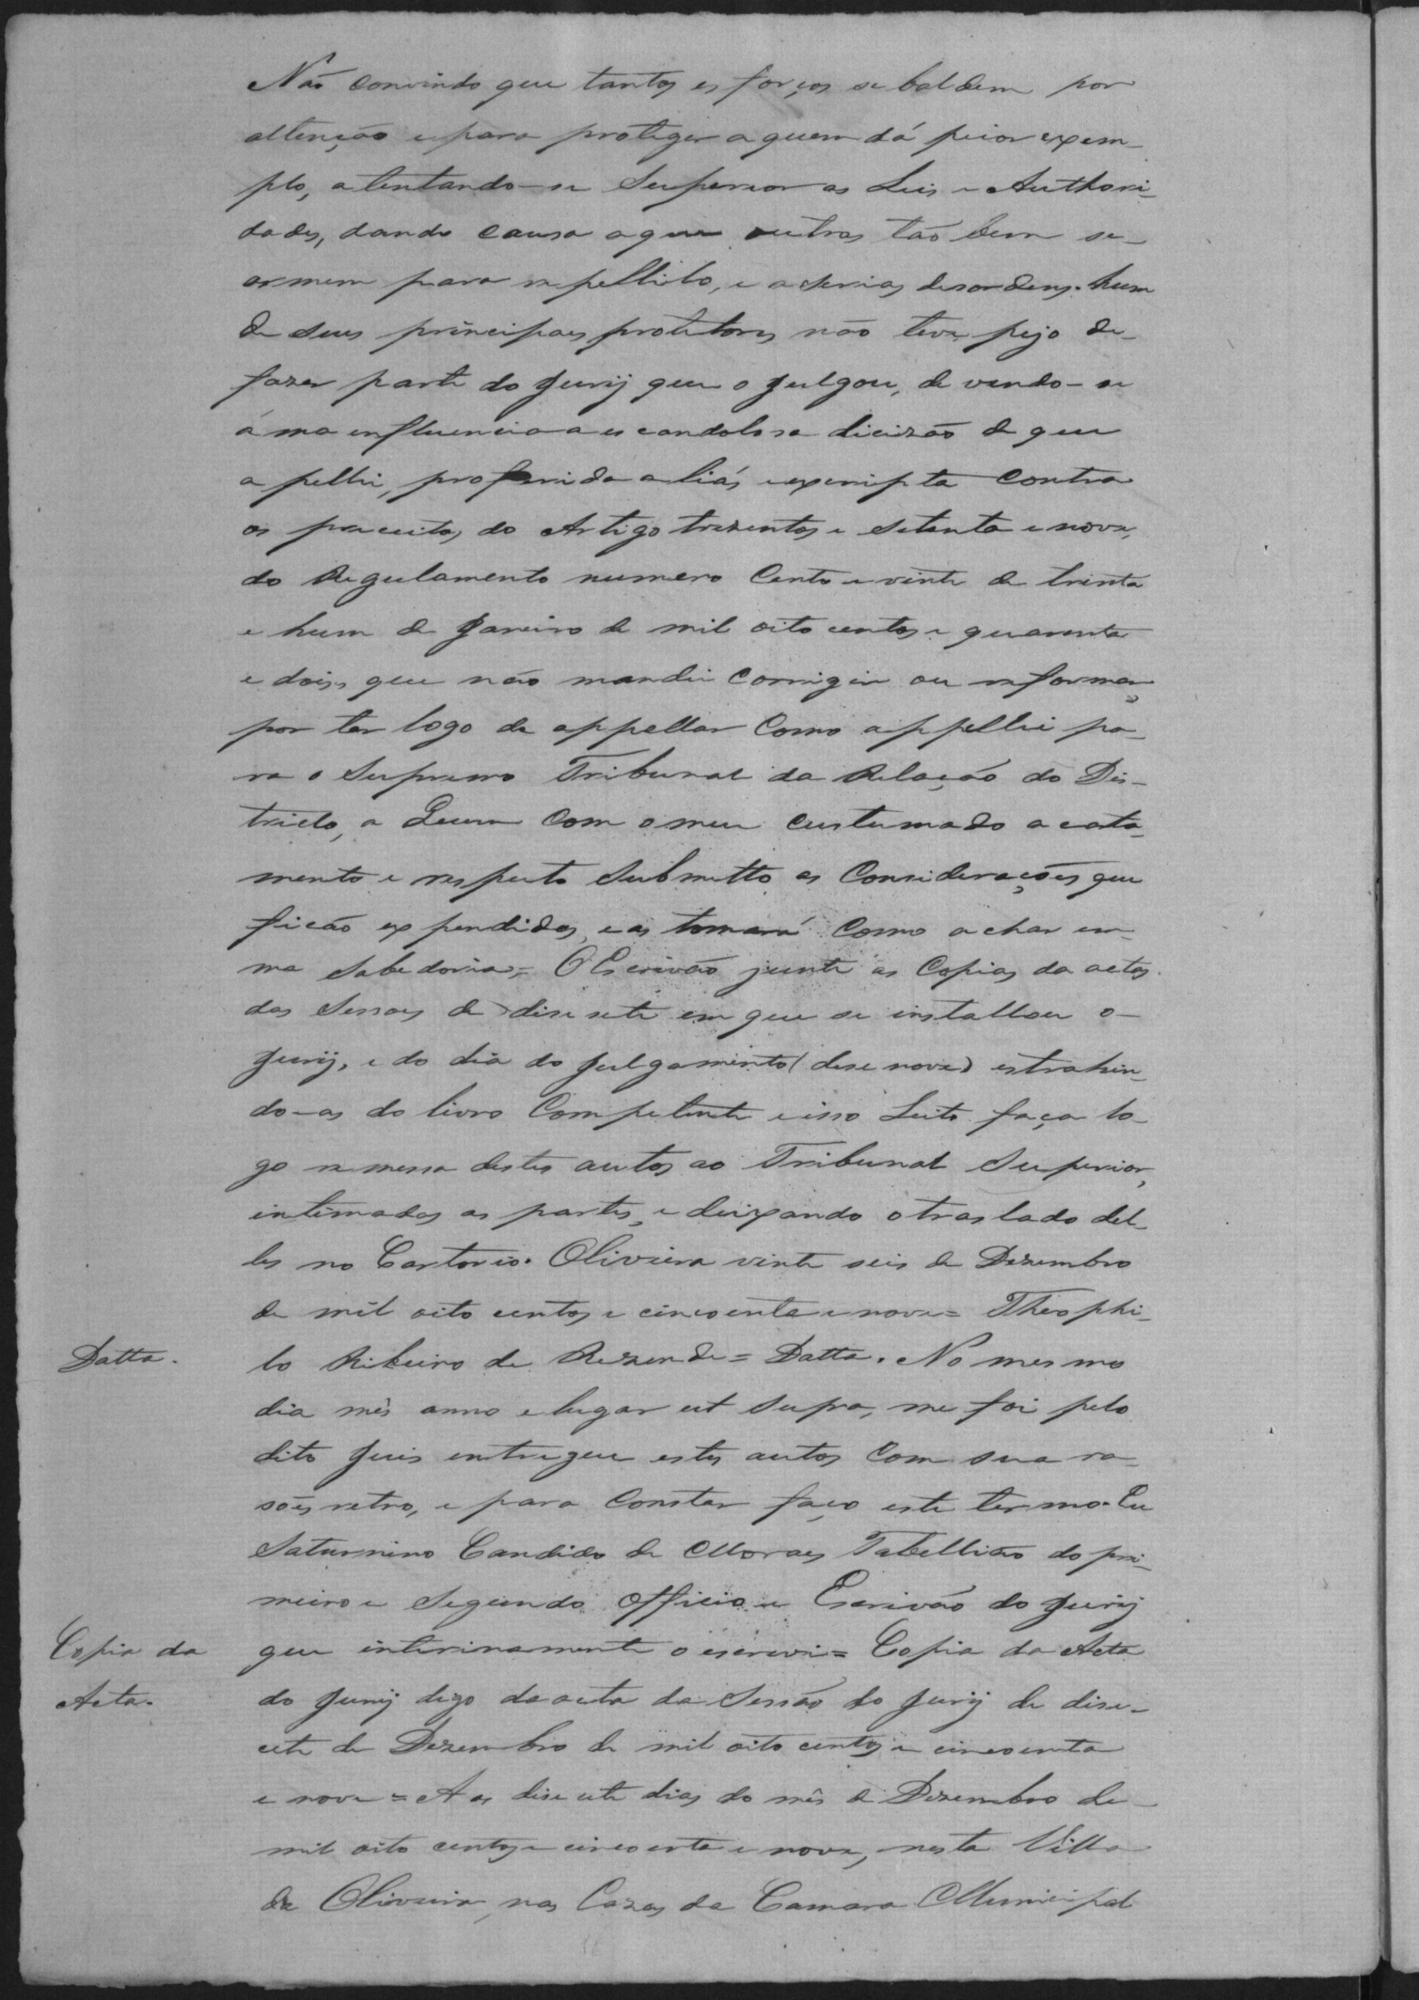 Não convindo que tantos esforços se baldem por
attenção e para proteger a quem dá peior exem-
plo, atentando-se Superior as Leis e Authori-
dades, dando causa aque outros tão bem se-
armem para repellilo, e a serias desordens. hum
de seus principaes protetores não teve pejo de-
fazer parte do Jurij que o julgou, devendo-se
á ma influencia a escandolosa dicizão de que
apellei, proferida aliás e escripta contra
os preceitos do Artigo trezentos e setenta e nove,
do Regulamento numero Cento e vinte de trinta
e hum de Janeiro de mil oito centos e quarenta
e dois, que não mandei corrigir ou reformar,
por ter logo de appellar Como appellei pa-
ra o Supremo Tribunal da Relação do Dis-
tricto, a Quem Com o meu custumado acata-
mento e respeito Submetto as Considerações que
ficão expendidas, e as tomará Como achar em
sua Sabedoria, = O Escrivão junte as Copias da actas
das Sessoes de disesete em que se installou o-
Jurij, e do dia do julgamento (desenove) estrahin-
do-as do livro Competente e isso Feito faça lo-
go remessa destes autos ao Tribunal Superior,
intimadas as partes, e deixando o traslado del-
les no Cartorio. Oliveira vinte seis de Dezembro
de mil oito centos e cincoenta e nove = Theophi-
Datta.
lo Ribeiro de Rezende = Datta. No mesmo
dia mês anno e lugar ut supra, me foi pelo
dito Juis entregue estes autos Com sua ra-
sões retro, e para Constar faço este termo. Eu
Saturnino Candido de Moraes Tabellião do pri-
meiro e Segundo Officio e Escrivão do Jurij
Copia da
que interinamente o escrevi = Copia da Acta
Acta.
do Jurij digo da acta da Sessão do Jurij de dise-
cete de Dezembro de mil oito centos e cincoenta
e nove = Aos disecete dias do mês de Dezembro de-
mil oito centos e cincoenta e nove, nesta Villa
de Oliveira, nas Cazas da Camara Municipal